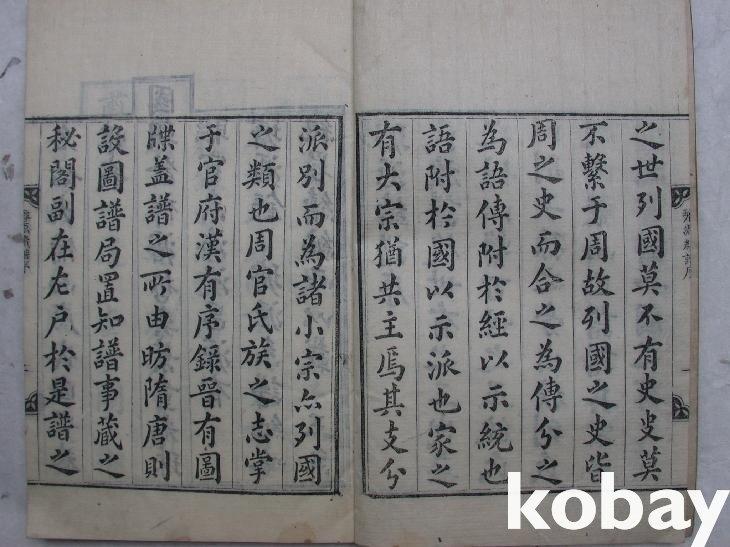 之世列國莫不有史史莫
不繫于周故列國之史皆
周之史而合之為傳分之
為語傳附於經以示統也
語附於國以示派也家之
有大宗猶共主焉其支分
派別而為諸小宗亦列國
之類也周官氏族之志掌
于官府漢有序錄晉有圖
牒盖譜之所由昉隋唐則
設圖譜局置知譜事藏之
秘閣副在左戶於是譜之
kobay